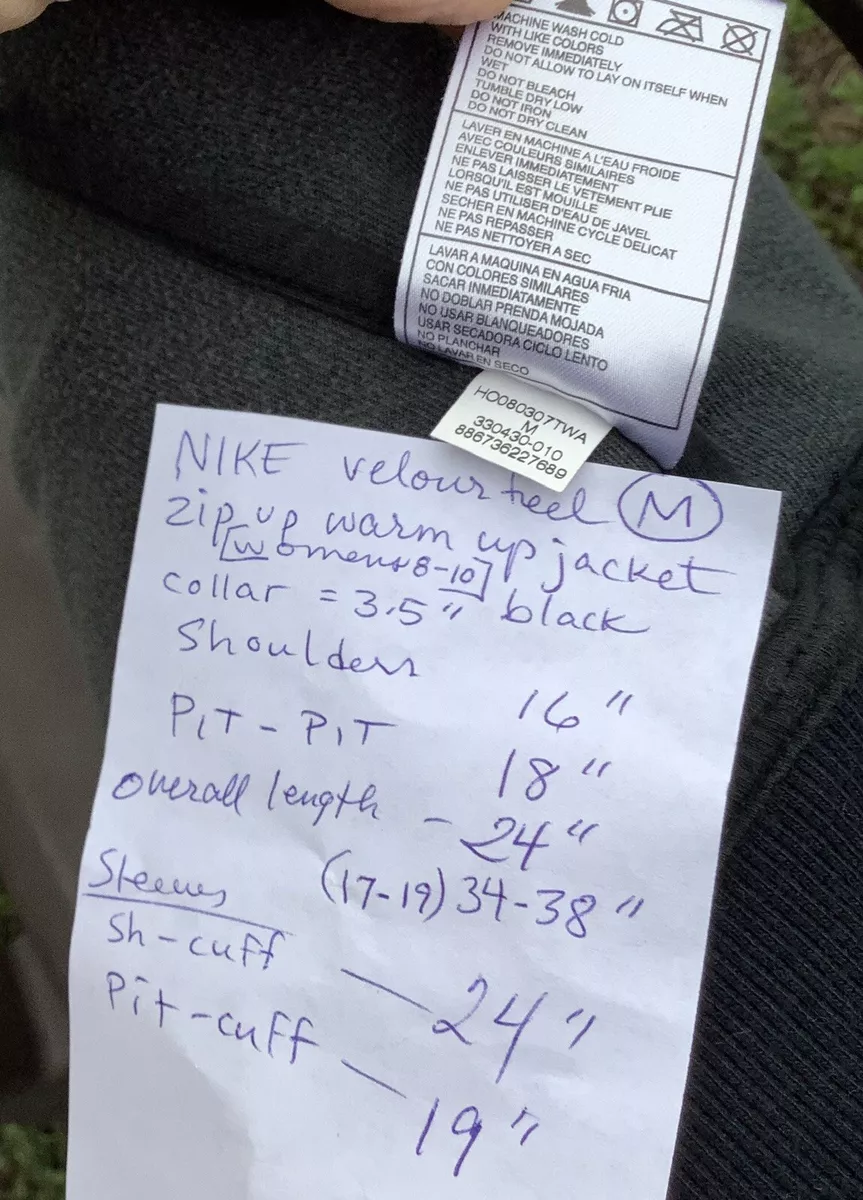 MACHINE WASH COLD
WITH LIKE COLORS
REMOVE IMMEDIATELY
DO NOT ALLOW TO LAY ON ITSELF WHEN
WET
DO NOT BLEACH
TUMBLE DRY LOW
DO NOT IRON
DO NOT DRY CLEAN
LAVER EN MACHINE A L'EAU FROIDE
AVEC COULEURS SIMILAIRES
ENLEVER IMMEDIATEMENT
NE PAS LAISSER LE VETEMENT PLIE
LORSQU'IL EST MOUILLE
NE PAS UTILISER D'EAU DE JAVEL
SECHER EN MACHINE CYCLE DELICAT
NE PAS REPASSER
NE PAS NETTOYER A SEC
LAVAR A MAQUINA EN AGUA FRIA
CON COLORES SIMILARES
SACAR INMEDIATAMENTE
NO DOBLAR PRENDA MOJADA
NO USAR BLANQUEADORES
USAR SECADORA CICLO LENTO
NO PLANCHAR
NO LAVAR EN SECO
HO080307TWA
M
330430-010
886736227689
NIKE velour feel M
zip up warm up jacket
[womens 8-10]
collar = 3.5" black
Shoulders 16"
PIT - PIT 18"
overall length - 24"
(17-19) 34-38"
Sleeves
Sh-cuff — 24"
Pit-cuff — 19"